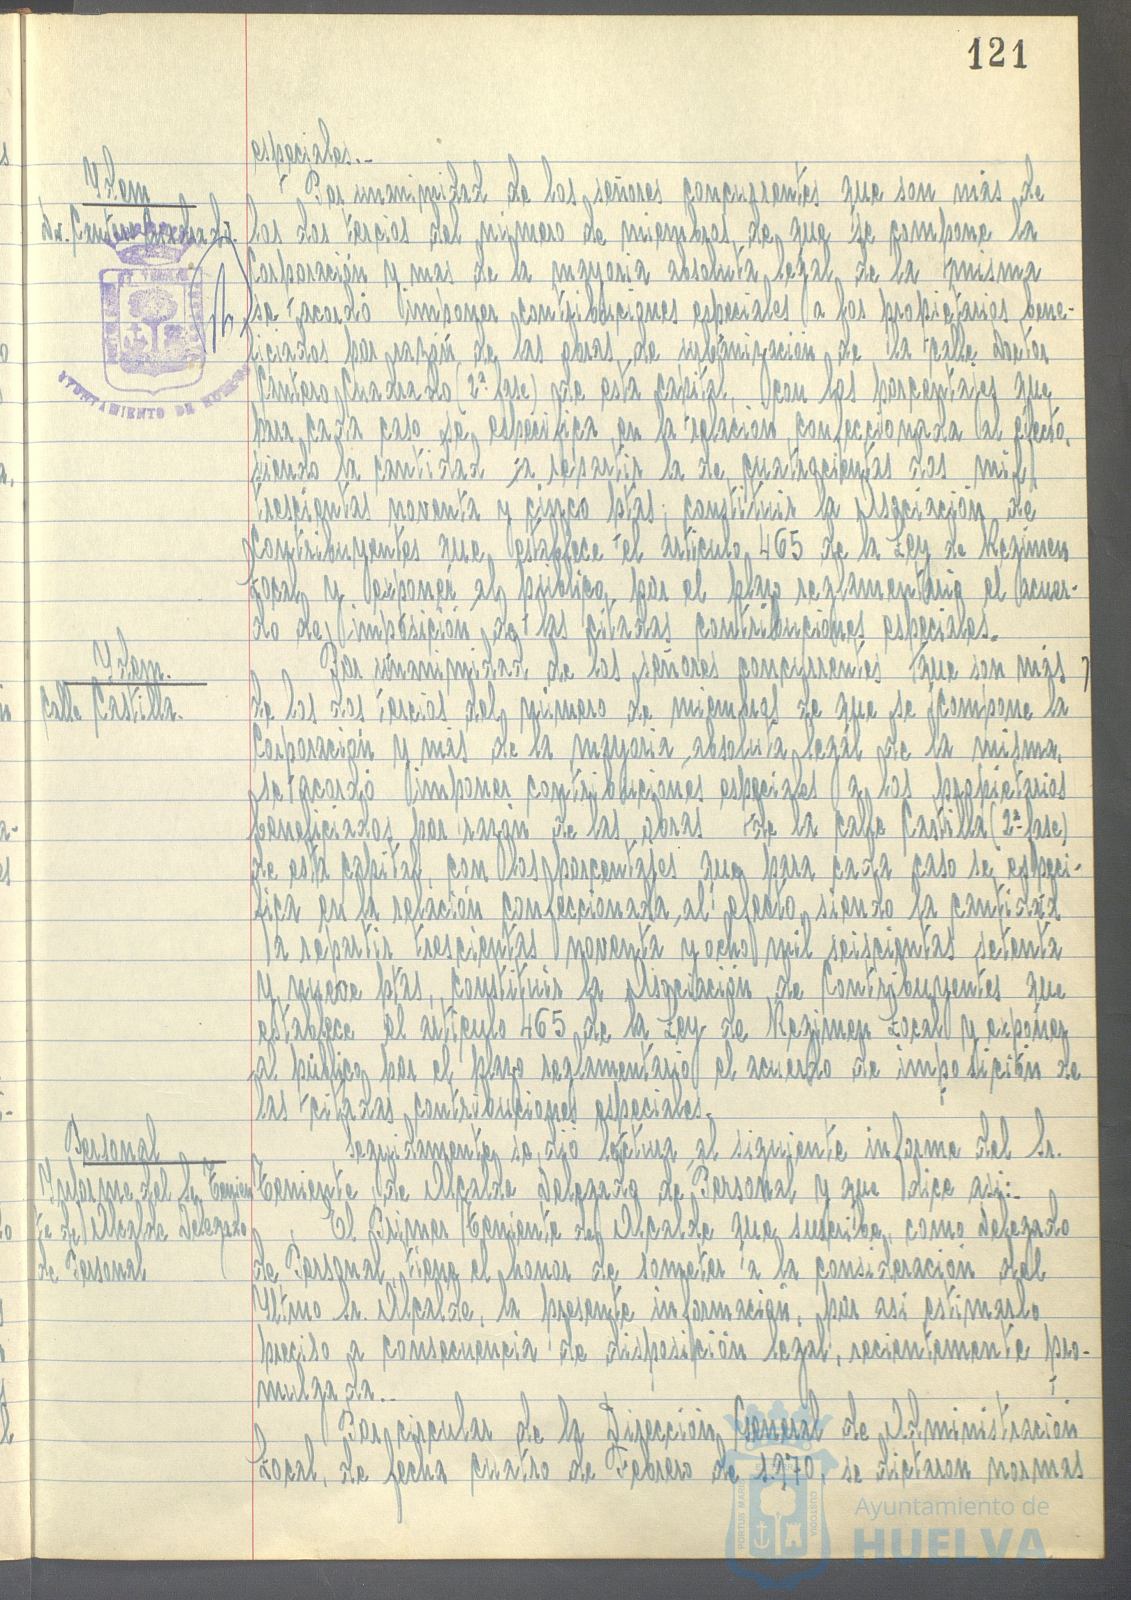 121
especiales.-
Ytem
Dr. Cantero Cuadrado.
AYUNTAMIENTO DE HUELVA
Por unanimidad de los señores concurrentes que son más de
los dos tercios del número de miembros de que se compone la
Corporación y mas de la mayoria absoluta legal de la misma
se acordó imponer contribuciones especiales a los propietarios bene-
ficiados por razón de las obras de urbanización de la calle Doctor
Cantero Cuadrado (2ª fase) de esta capital, con los porcentajes que
para cada caso se especifica en la relación confeccionada al efecto,
siendo la cantidad a repartir la de cuatrocientas dos mil
trescientas noventa y cinco ptas; constituir la Asociación de
Contribuyentes que establece el artículo 465 de la Ley de Regimen
Local y exponer al público por el plazo reglamentario el acuer-
do de imposición de las citadas contribuciones especiales.
Ytem.
Calle Castilla.
Por unanimidad de los señores concurrentes que son más
de los dos tercios del número de miembros de que se compone la
Corporación y más de la mayoria absoluta legal de la misma,
se acordó imponer contribuciones especiales a los propietarios
beneficiados por razón de las obras de la calle Castilla (2ª fase)
de esta capital, con los porcentajes que para cada caso se especi-
fica en la relación confeccionada al efecto, siendo la cantidad
a repartir trescientas noventa y ocho mil seiscientas setenta
y nueve ptas, constituir la Asociación de Contribuyentes que
establece el articulo 465 de la Ley de Regimen Local y exponer
al público por el plazo reglamentario el acuerdo de imposición de
las citadas contribuciones especiales.
Personal
Informe del Sr. Tenien
te de Alcalde Delegado
de Personal
Seguidamente se dió lectura al siguiente informe del Sr.
Teniente de Alcalde Delegado de Personal y que dice asi:-
El Primer Teniente de Alcalde que suscribe, como Delegado
de Personal, tiene el honor de someter a la consideración del
Iltmo Sr. Alcalde, la presente información, por asi estimarlo
preciso a consecuencia de disposición legal, recientemente pro-
mulgada.-
Por circular de la Dirección General de Administración
Local, de fecha cuatro de Febrero de 1.970, se dictaron normas
PORTUS MARIS
CUSTODIA
Ayuntamiento de
HUELVA